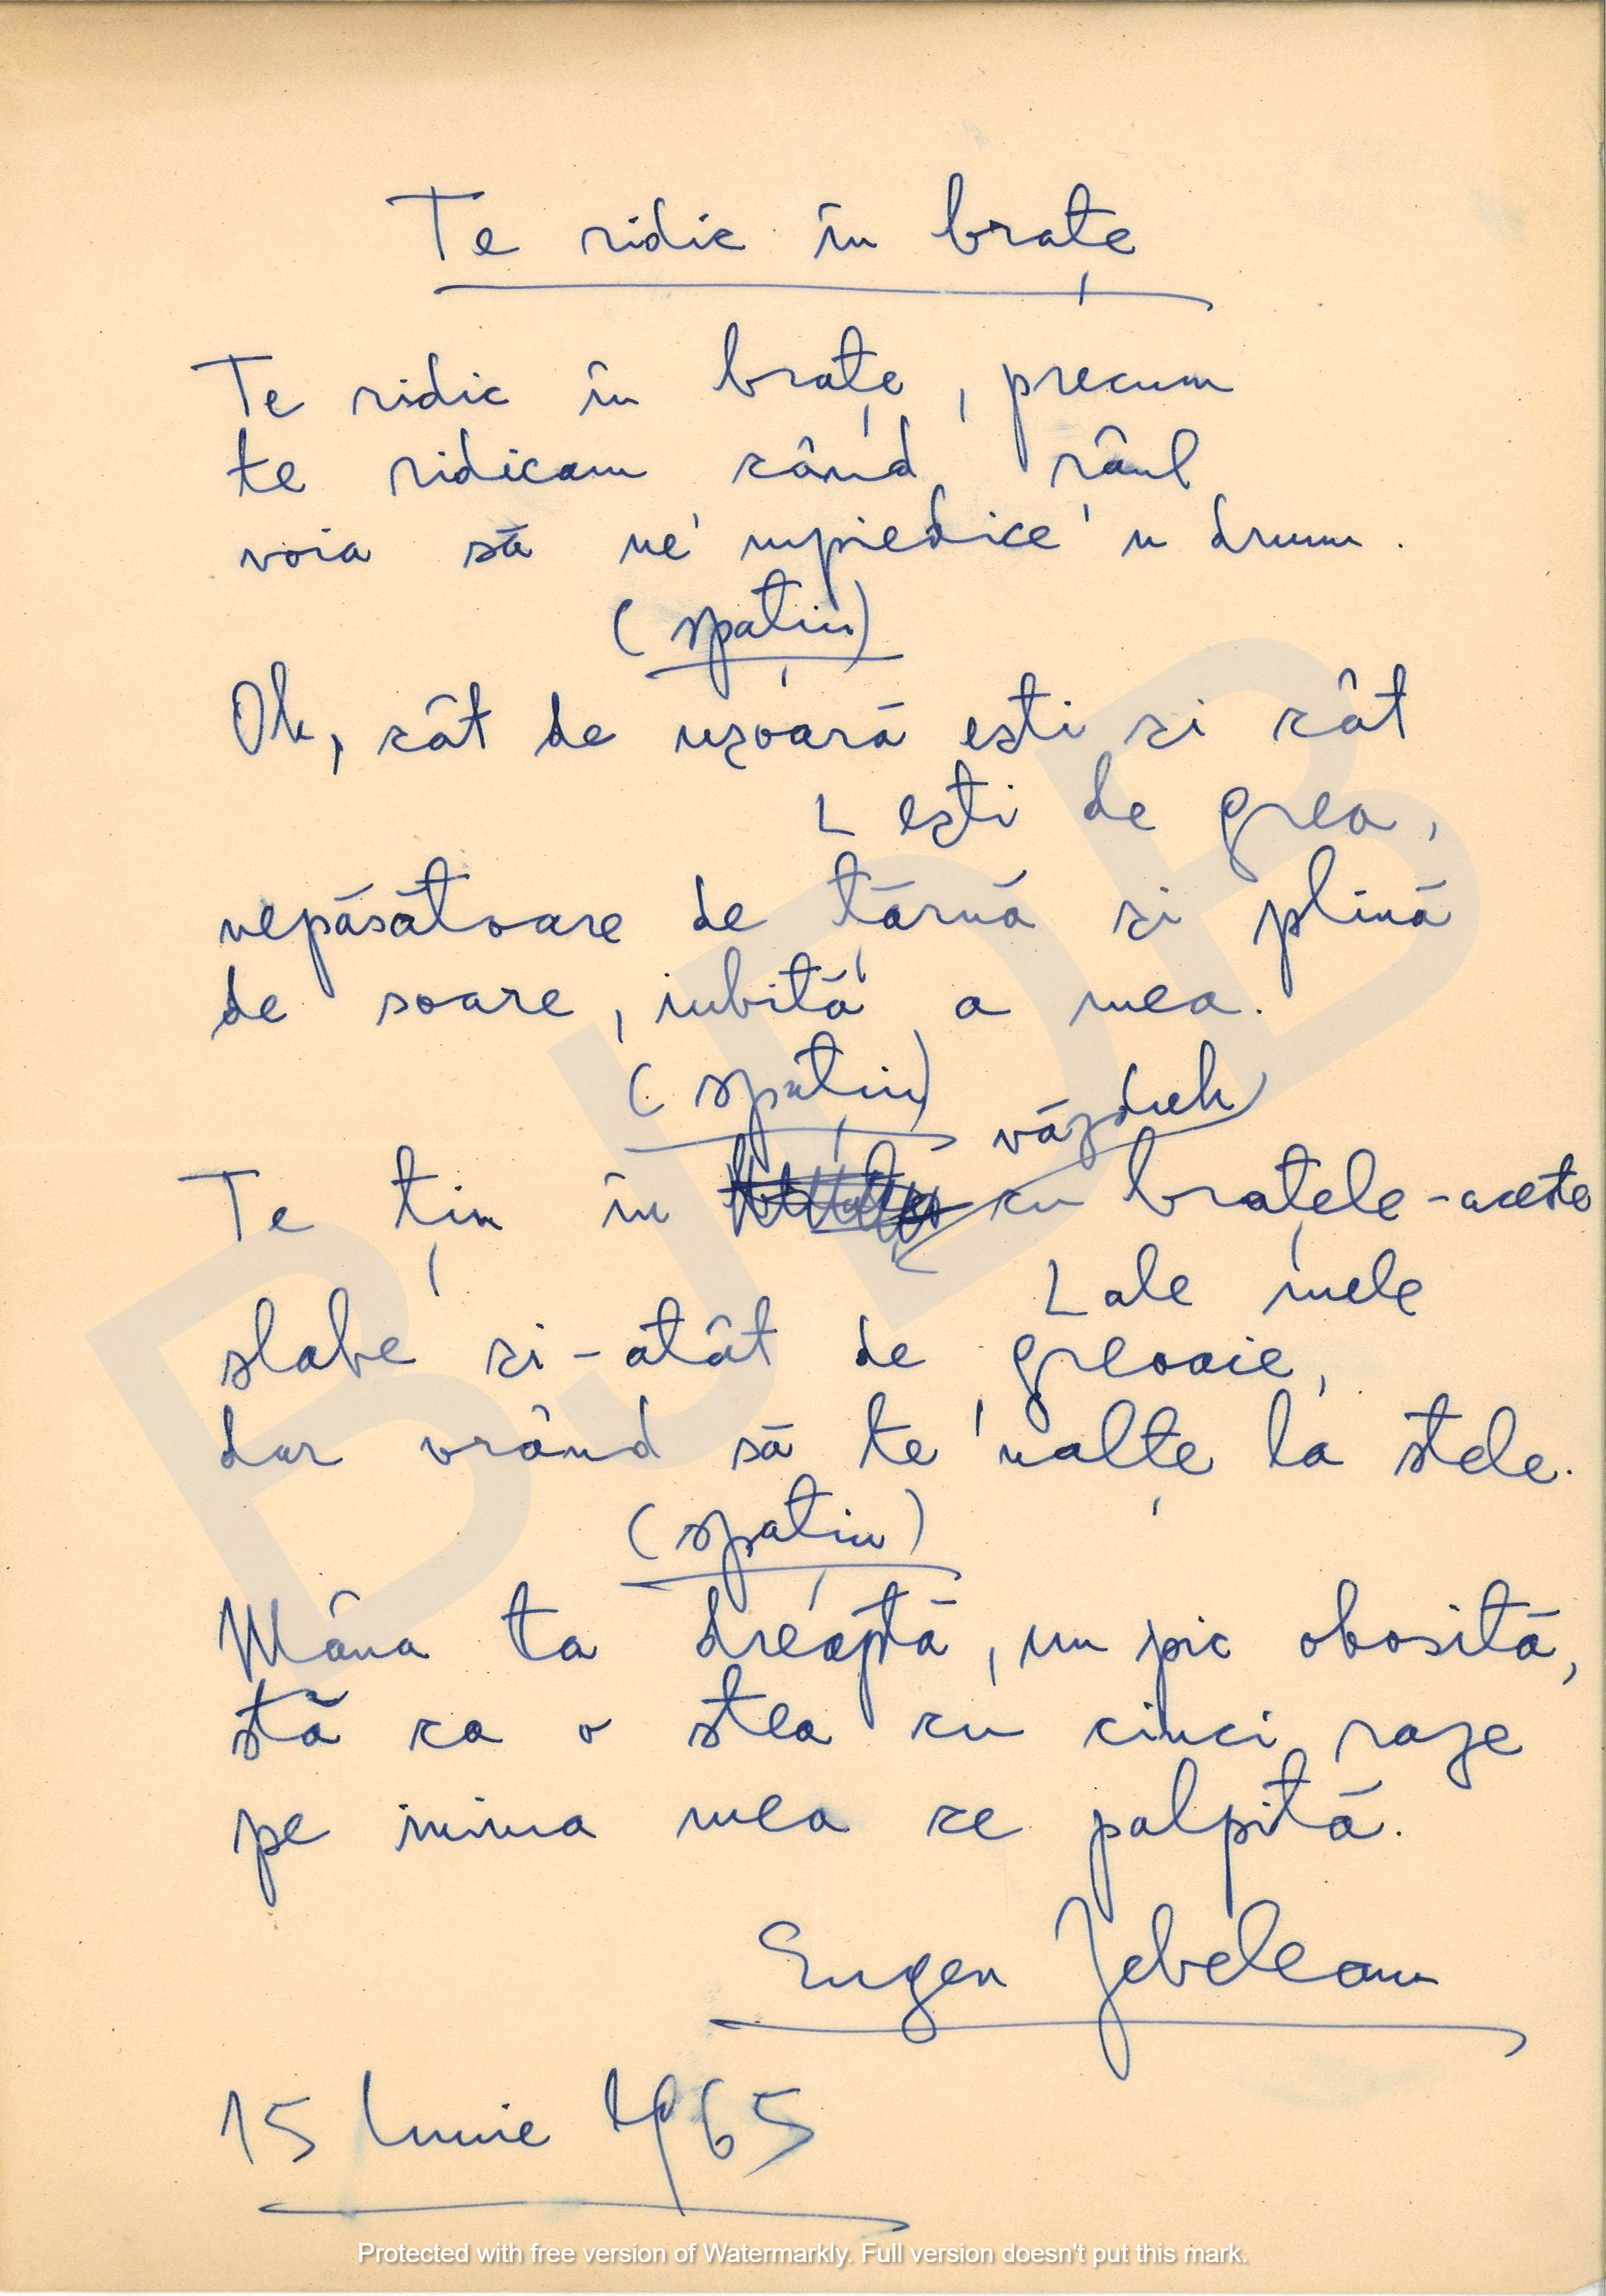 Te ridic în brațe
Te ridic în brațe, precum
te ridicam când râul
voia să ne' mpiedice 'n drum.
(spațiu)
Oh, cât de ușoară ești și cât
L ești de grea,
nepăsătoare de țărnă și plină
de soare, iubită a mea.
(spațiu)
văzduh
Te țin în cu brațele-aceste
L ale mele
slabe și-atât de greoaie,
dar vrând să te 'nalțe la stele.
(spațiu)
Mâna ta dreaptă, un pic obosită,
stă ca o stea cu cinci raze
pe inima mea ce palpită.
Eugen Jebeleanu
15 Iunie 1965
BJDB
Protected with free version of Watermarkly. Full version doesn't put this mark.